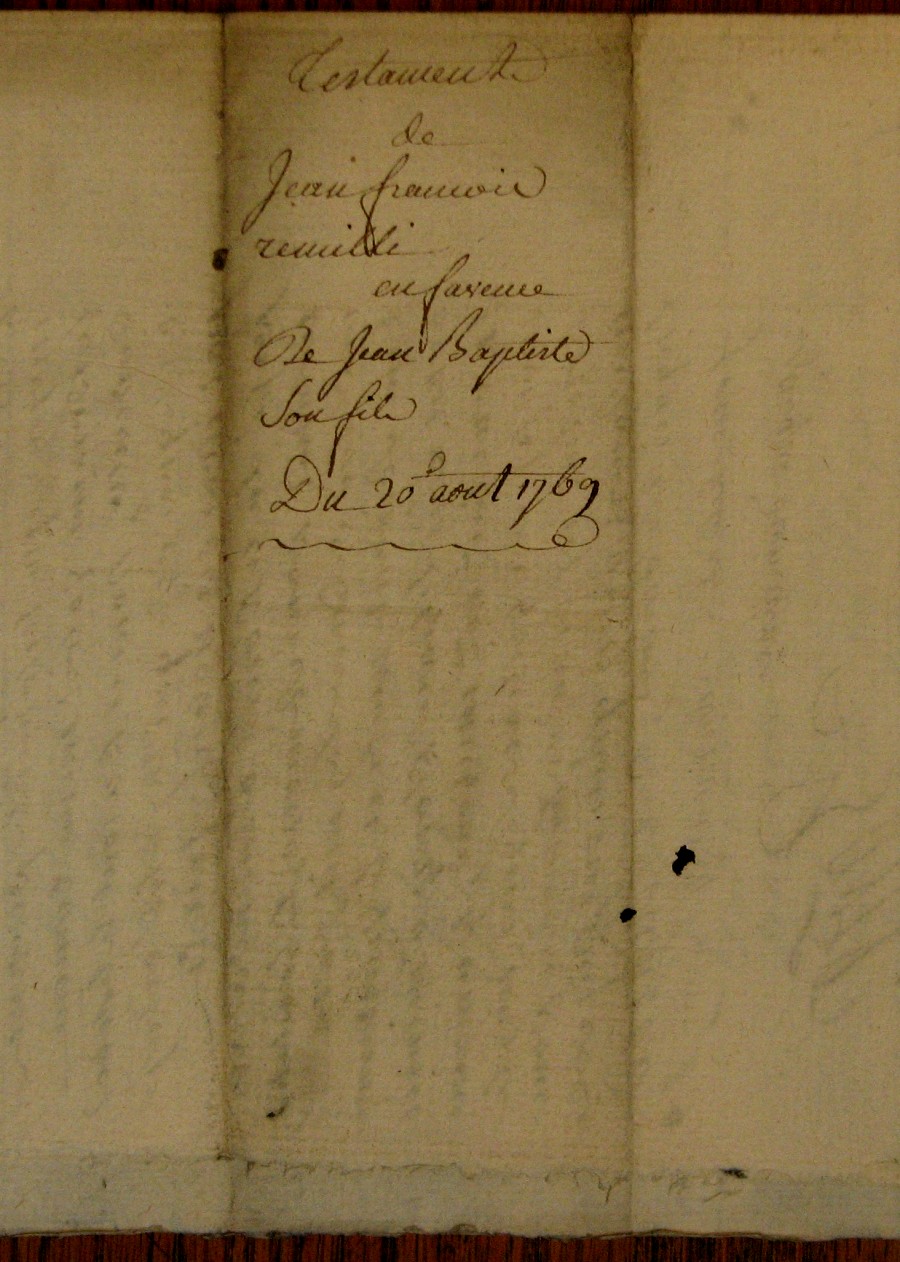 Testament
de
Jean francois
remilli
en faveur
De Jean Baptiste
Son fils
Du 20e aout 1769